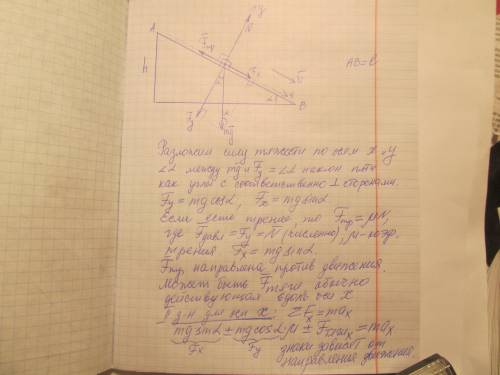 y
A
N
F̅тр
F̅x
υ̅
AB = l
h
α
α
x
B
F̅y
m̅g̅
Разложим силу тяжести по осям x и y
∠α между mg и F̅y = ∠α наклон. плос.
как углы с соответственно ⊥ сторонами.
F̅y = mg cosα, F̅x = mg sinα
Если есть трение, то F̅тр = μN,
где F̅давл = F̅y = N (численно), μ - коэф.
трения F̅x = mg sinα.
F̅тр направлена против движения.
Может быть F̅тяги обычно
действующая вдоль оси x
II з-н для оси x: ΣF̅x = max
mg sinα ± mg cosα μ ± F̅тяги x = max
Fx Fy знаки зависят от
направления движения.